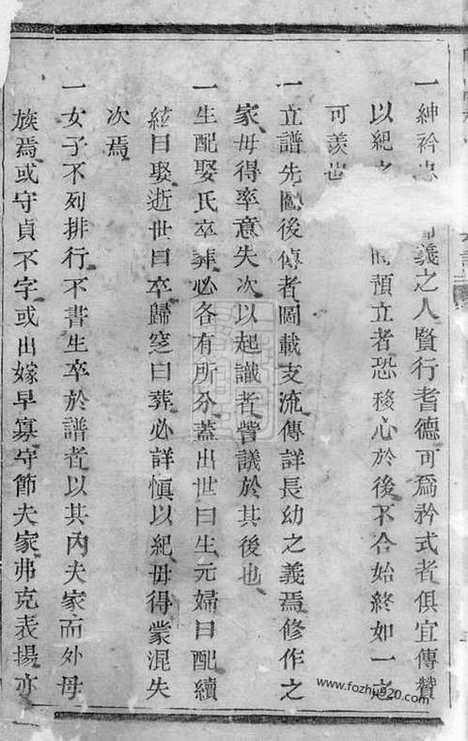 一紳衿忠節義之人賢行耆德可爲矜式者俱宜傳贊
以紀之預立者恐移心於後不合始終如一之
可羨也
一立譜先圖後傳者圖載支流傳詳長幼之義焉修作之
家毋得率意失次以起識者訾議於其後也
一生配娶氏卒葬必各有所分蓋出世曰生元婦曰配續
絃曰娶逝世曰卒歸窆曰葬必詳慎以紀毋得蒙混失
次焉
一女子不列排行不書生卒於譜者以其內夫家而外母
族焉或守貞不字或出嫁早寡守節夫家弗克表揚亦
www.fozhu920.com